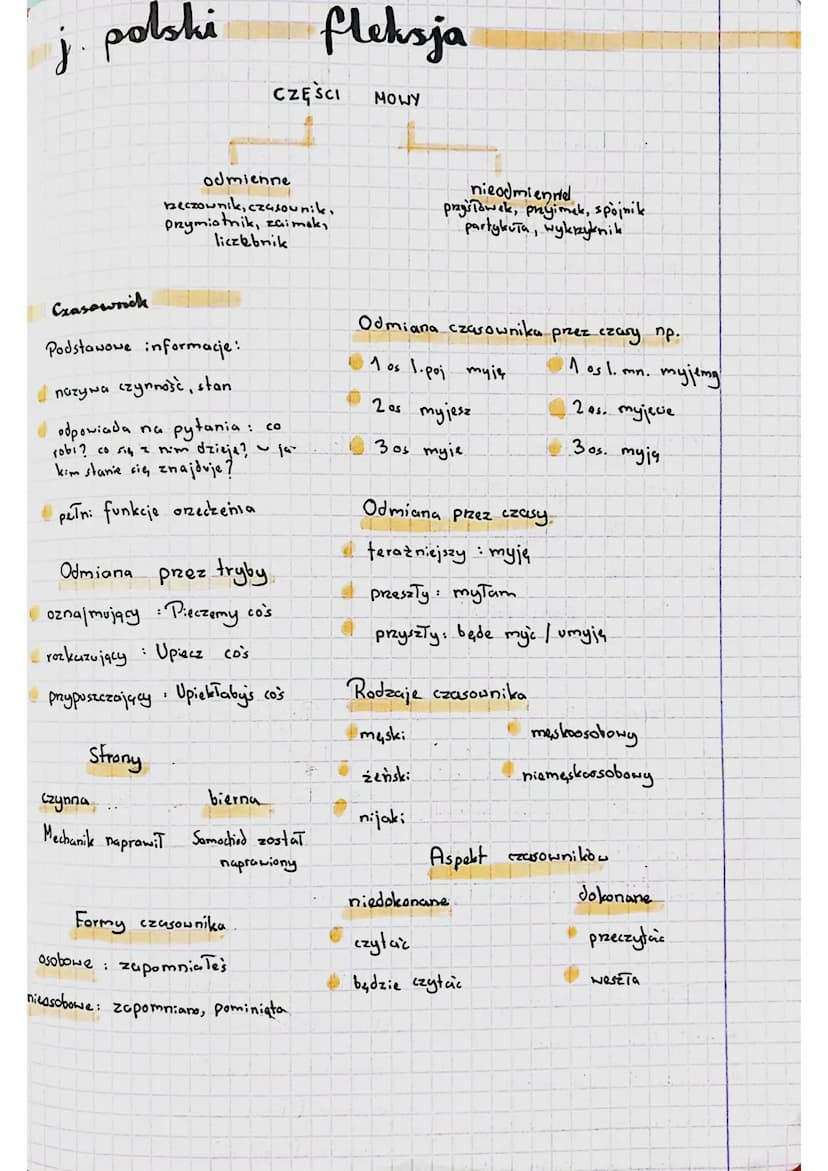 j. polski fleksja
CZĘŚCI MOWY
odmienne
rzeczownik, czasownik,
przymiotnik, zaimek,
liczebnik
nieodmienne
przysłówek, przyimek, spójnik
partykuła, wykrzyknik
Czasownik
Podstawowe informacje:
nazywa czynność, stan
odpowiada na pytania: co
robi? co się z nim dzieje? w ja-
kim stanie się znajduje?
pełni funkcje orzeczenia
Odmiana przez tryby
oznajmujący : Pieczemy coś
rozkazujący : Upiecz coś
przypuszczający : Upiekłabyś coś
Strony
czynna
bierna
Mechanik naprawił
Samochód został
naprawiony
Formy czasownika
osobowe : zapomniałeś
nieosobowe: zapomniano, pominięta
Odmiana czasownika przez czasy np.
1 os l.poj myję
1 os l. mn. myjemy
2 os myjesz
2 os. myjecie
3 os myje
3 os. myją
Odmiana przez czasy
teraźniejszy : myję
przeszły : myłam
przyszły : będe myć / umyję
Rodzaje czasownika
męski
męskoosobowy
żeński
niemęskoosobowy
nijaki
Aspekt czasowników
niedokonane
dokonane
czytać
przeczytać
będzie czytać
weszła